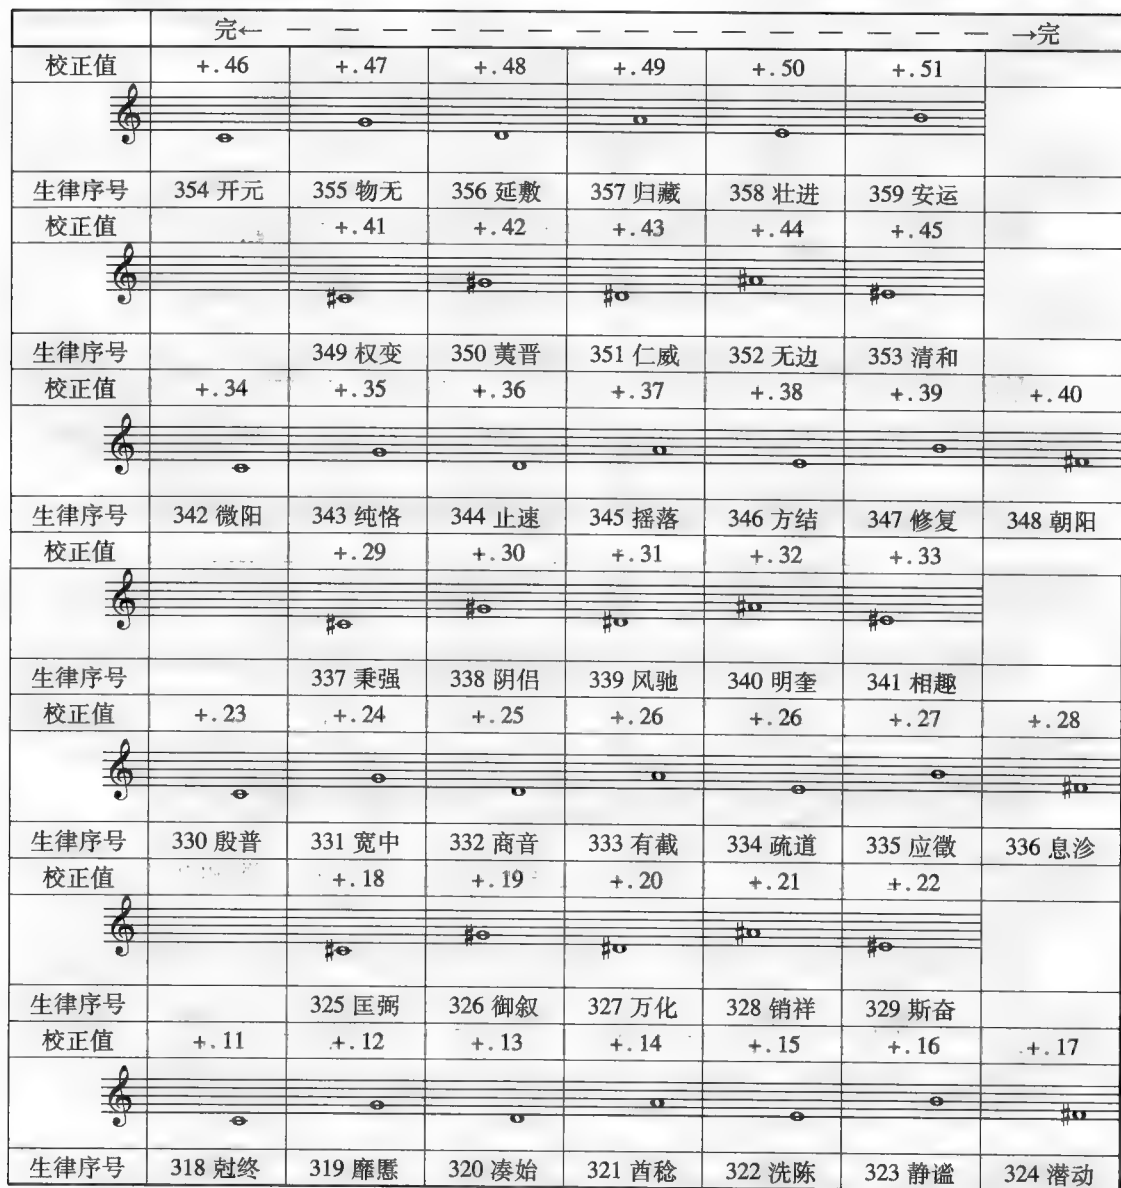 完← — — — — — — — — — — — — — — — →完
校正值 +.46 +.47 +.48 +.49 +.50 +.51
生律序号 354 开元 355 物无 356 延敷 357 归藏 358 壮进 359 安运
校正值 +.41 +.42 +.43 +.44 +.45
生律序号 349 权变 350 荑晋 351 仁威 352 无边 353 清和
校正值 +.34 +.35 +.36 +.37 +.38 +.39 +.40
生律序号 342 微阳 343 纯恪 344 止速 345 摇落 346 方结 347 修复 348 朝阳
校正值 +.29 +.30 +.31 +.32 +.33
生律序号 337 秉强 338 阴侣 339 风驰 340 明奎 341 相趣
校正值 +.23 +.24 +.25 +.26 +.26 +.27 +.28
生律序号 330 殷普 331 宽中 332 商音 333 有截 334 疏道 335 应徵 336 息沴
校正值 +.18 +.19 +.20 +.21 +.22
生律序号 325 匡弼 326 御叙 327 万化 328 销祥 329 斯奋
校正值 +.11 +.12 +.13 +.14 +.15 +.16 +.17
生律序号 318 尅终 319 靡慝 320 凑始 321 酋稔 322 洗陈 323 静谧 324 潜动